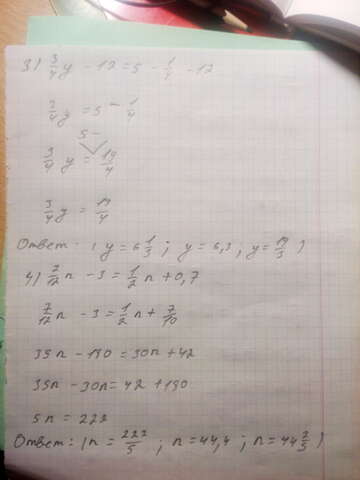 3) 3/4 y - 12 = 5 - 1/4 - 12
3/4 y = 5 - 1/4
5 -
3/4 y = 19/4
3/4 y = 19/4
Ответ: ( y = 6 1/3 ; y = 6,3 ; y = 19/3 )
4) 7/12 n - 3 = 1/2 n + 0,7
7/12 n - 3 = 1/2 n + 7/10
35n - 180 = 30n + 42
35n - 30n = 42 + 180
5n = 222
Ответ: ( n = 222/5 ; n = 44,4 ; n = 44 2/5 )